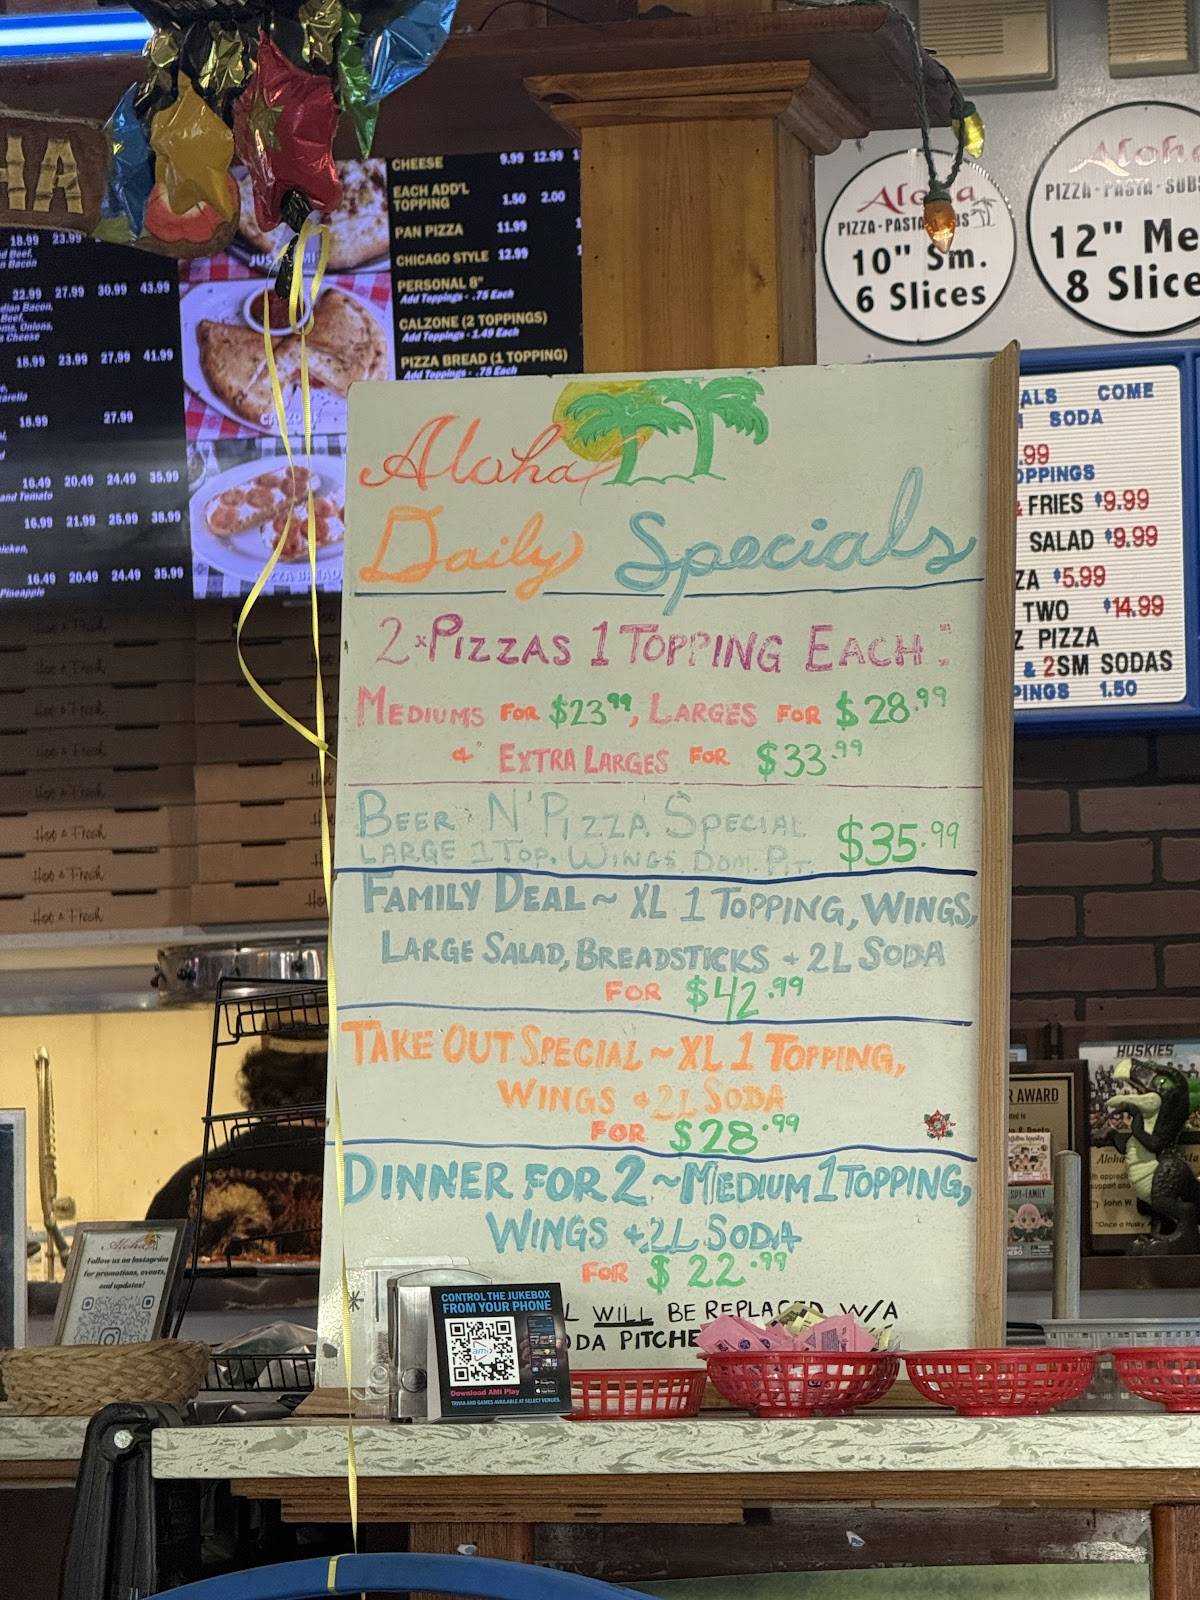 HA
18.99 23.99
d Beef,
n Bacon
22.99 27.99 30.99 43.99
dian Bacon,
Beef,
ms, Onions,
Cheese
18.99 23.99 27.99 41.99
arella
18.99 27.99
16.49 20.49 24.49 35.99
and Tomato
16.99 21.99 25.99 38.99
hicken,
16.49 20.49 24.49 35.99
Pineapple
CHEESE 9.99 12.99 1
EACH ADD'L
TOPPING 1.50 2.00
PAN PIZZA 11.99
CHICAGO STYLE 12.99
PERSONAL 8"
Add Toppings - .75 Each
CALZONE (2 TOPPINGS)
Add Toppings - 1.49 Each
PIZZA BREAD (1 TOPPING)
Add Toppings - .75 Each
PIZZA BREAD
Aloha
PIZZA-PASTA-SUBS
10" Sm.
6 Slices
Aloha
PIZZA-PASTA-SUBS
12" Me
8 Slice
ALS COME
SODA
.99
OPPINGS
& FRIES $9.99
SALAD $9.99
ZA $5.99
TWO $14.99
Z PIZZA
& 2SM SODAS
PINGS 1.50
Aloha
Daily Specials
2×PIZZAS 1 TOPPING EACH:
MEDIUMS FOR $23.99, LARGES FOR $28.99
& EXTRA LARGES FOR $33.99
BEER N' PIZZA SPECIAL $35.99
LARGE 1 TOP. WINGS, DOM. PIT.
FAMILY DEAL ~ XL 1 TOPPING, WINGS,
LARGE SALAD, BREADSTICKS + 2L SODA
FOR $42.99
TAKE OUT SPECIAL ~ XL 1 TOPPING,
WINGS + 2L SODA
FOR $28.99
DINNER FOR 2 ~ MEDIUM 1 TOPPING,
WINGS + 2L SODA
FOR $22.99
* L WILL BE REPLACED W/A
ODA PITCHE
Hot & Fresh
Hot & Fresh
Hot & Fresh
Hot & Fresh
Hot & Fresh
Hot & Fresh
Hot & Fresh
Hot & Fresh
Aloha
Follow us on Instagram
for promotions, events,
and updates!
CONTROL THE JUKEBOX
FROM YOUR PHONE
ami
Download AMI Play
TRIVIA AND GAMES AVAILABLE AT SELECT VENUES.
HUSKIES
R AWARD
SPY×FAMILY
Aloha
John W
"Once a Husky